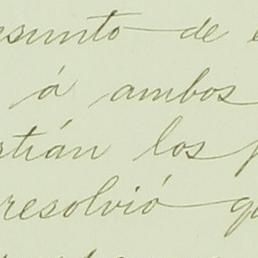 esunto de
á ambos
stián los
resolvió